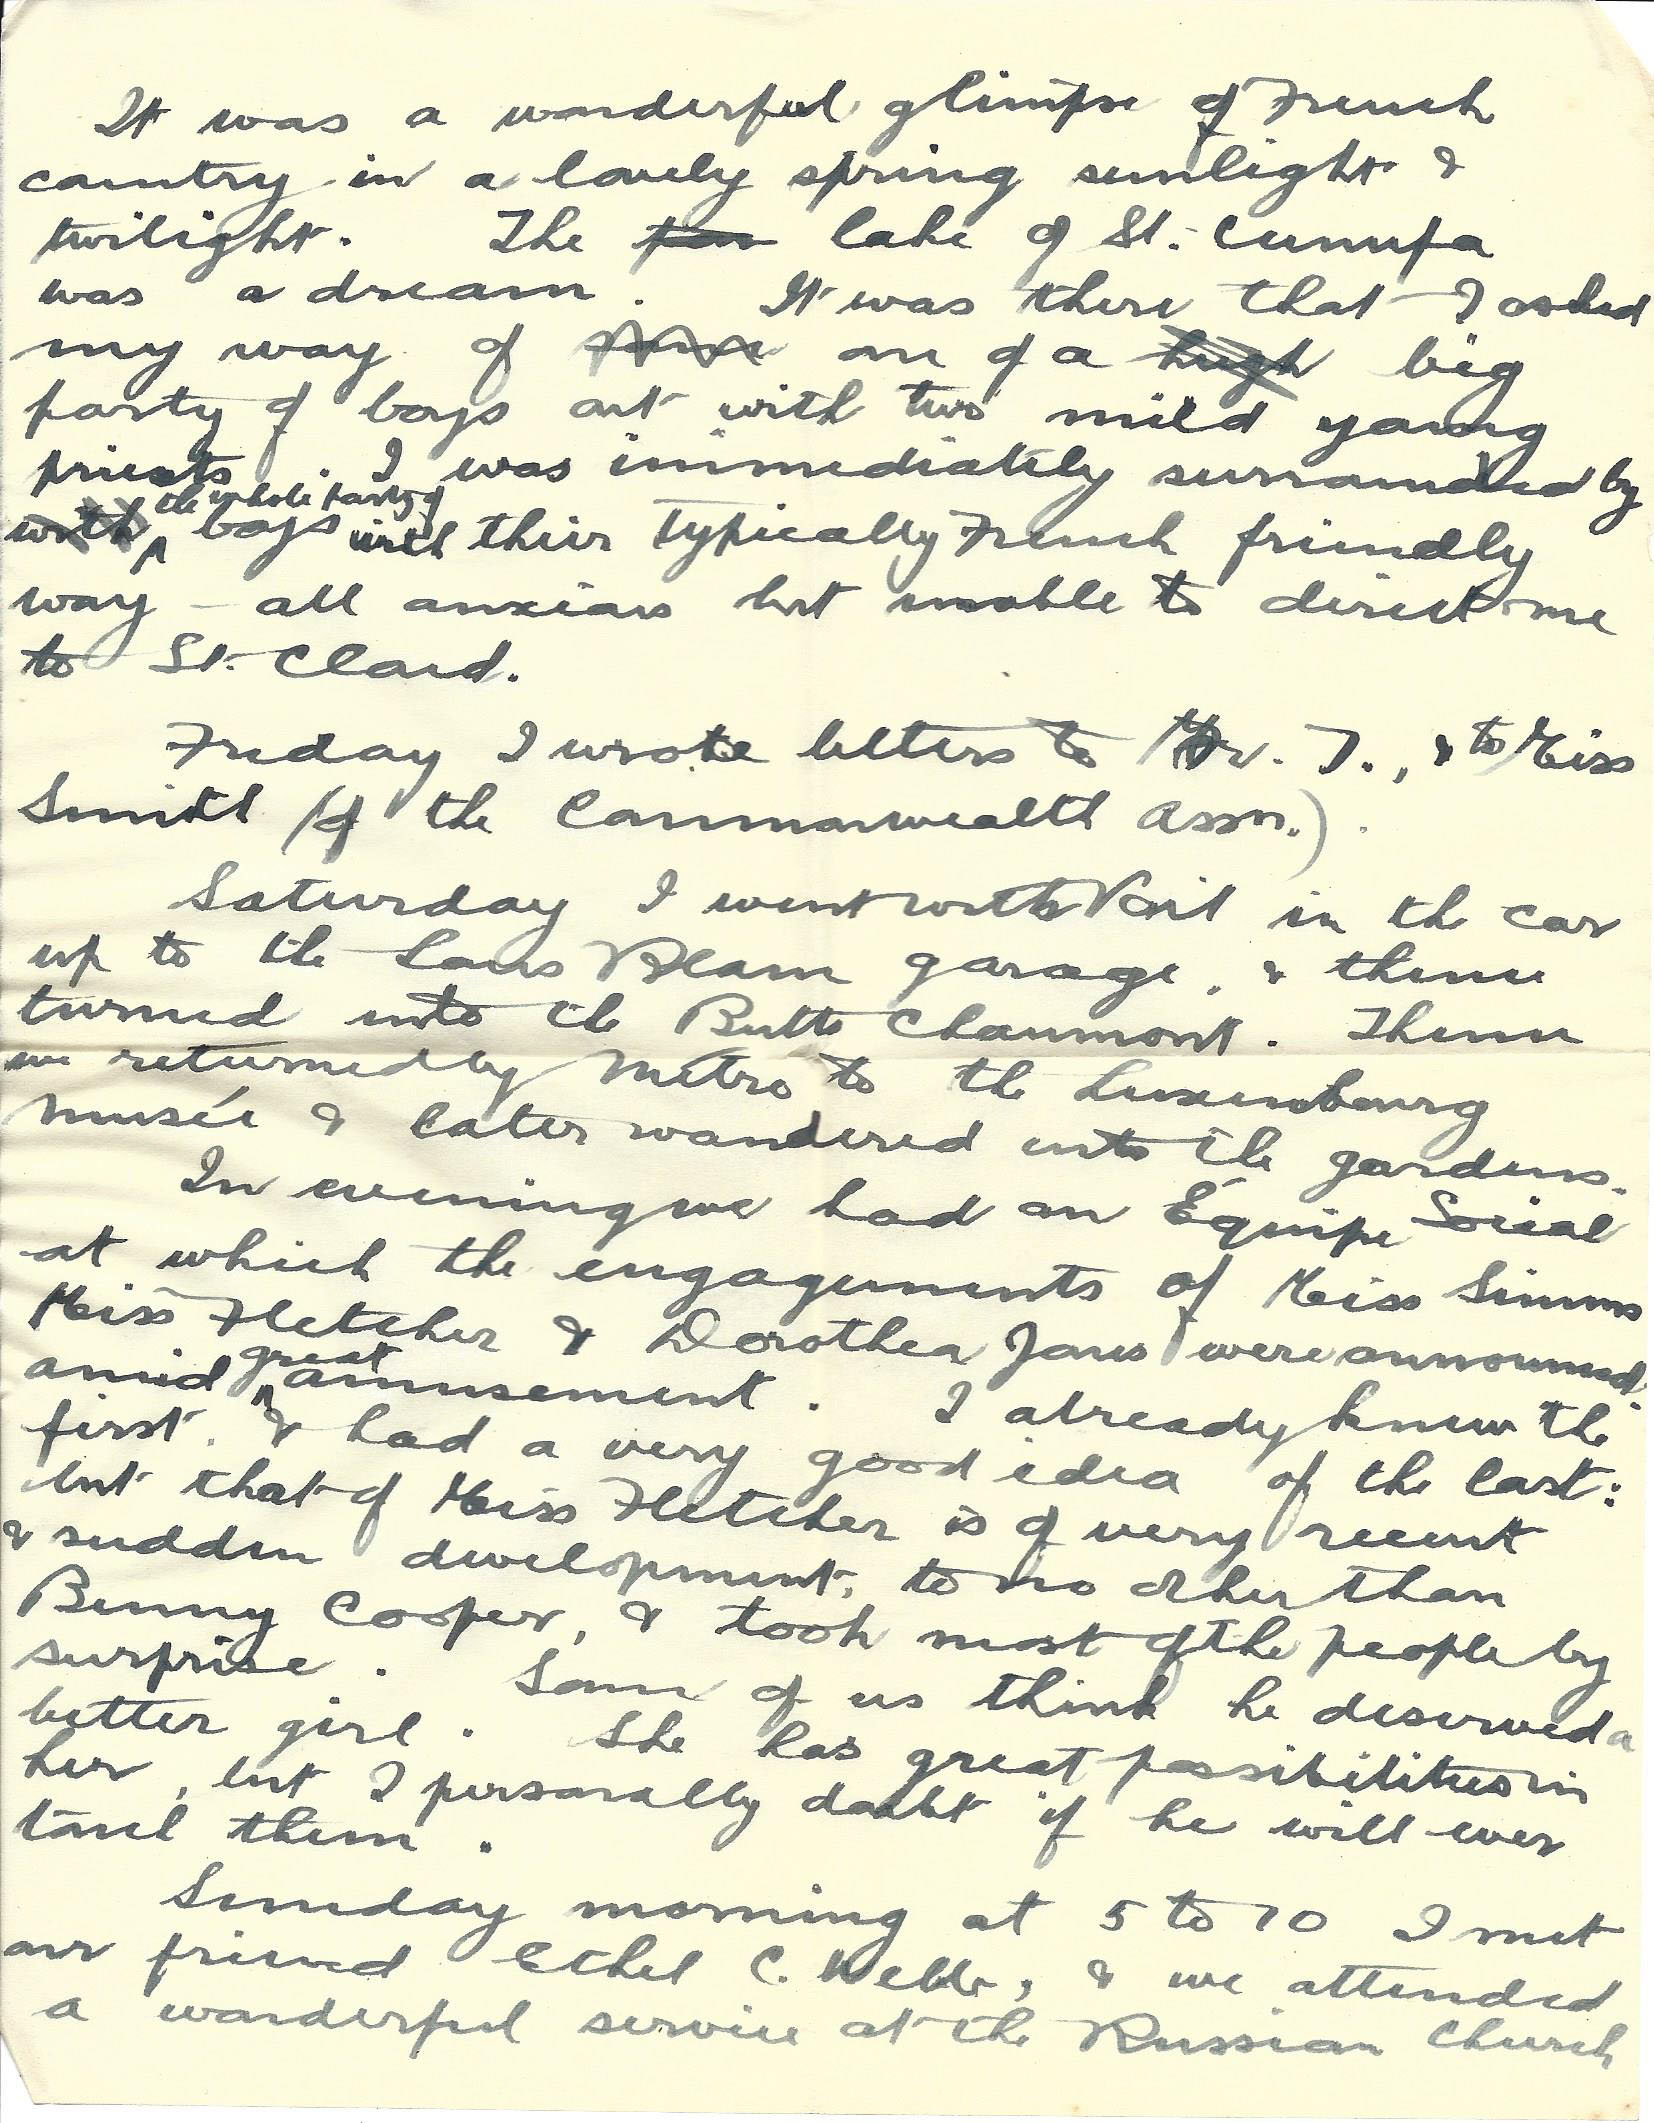 It was a wonderful glimpse of French
country in a lovely spring sunlight &
twilight. The lake of St. Cucufa
was a dream. It was there that I asked
my way of some one of a hugh big
party of boys out with two mild young
priests. I was immediately surrounded by
with the whole party of boys with their typically French friendly
way – all anxious but unable to direct me
to St. Cloud.
Friday I wrote letters to Mr. T., & to Miss
Smith (of the Commonwealth Assn.).
Saturday I went with in the car
up to the Blanc garage, & thence
turned into the Butte Chaumont. Thence
we returned by Métro to the Luxembourg
musée & later wandered into the gardens.
In evening we had an Équipe Social
at which the engagements of Miss Simms
Miss Fletcher & Dorothea Jones were announced
amid great amusement. I already knew the
first, & had a very good idea of the last:
but that of Miss Fletcher is of very recent
& sudden development, to no other than
Benny Cooper, & took most of the people by
surprise. Some of us think he deserved a
better girl. She has great possibilities in
her, but I personally doubt if he will ever
touch them.
Sunday morning at 5 to 10 I met
our friend Ethel C. Webb, & we attended
a wonderful service at the Russian Church